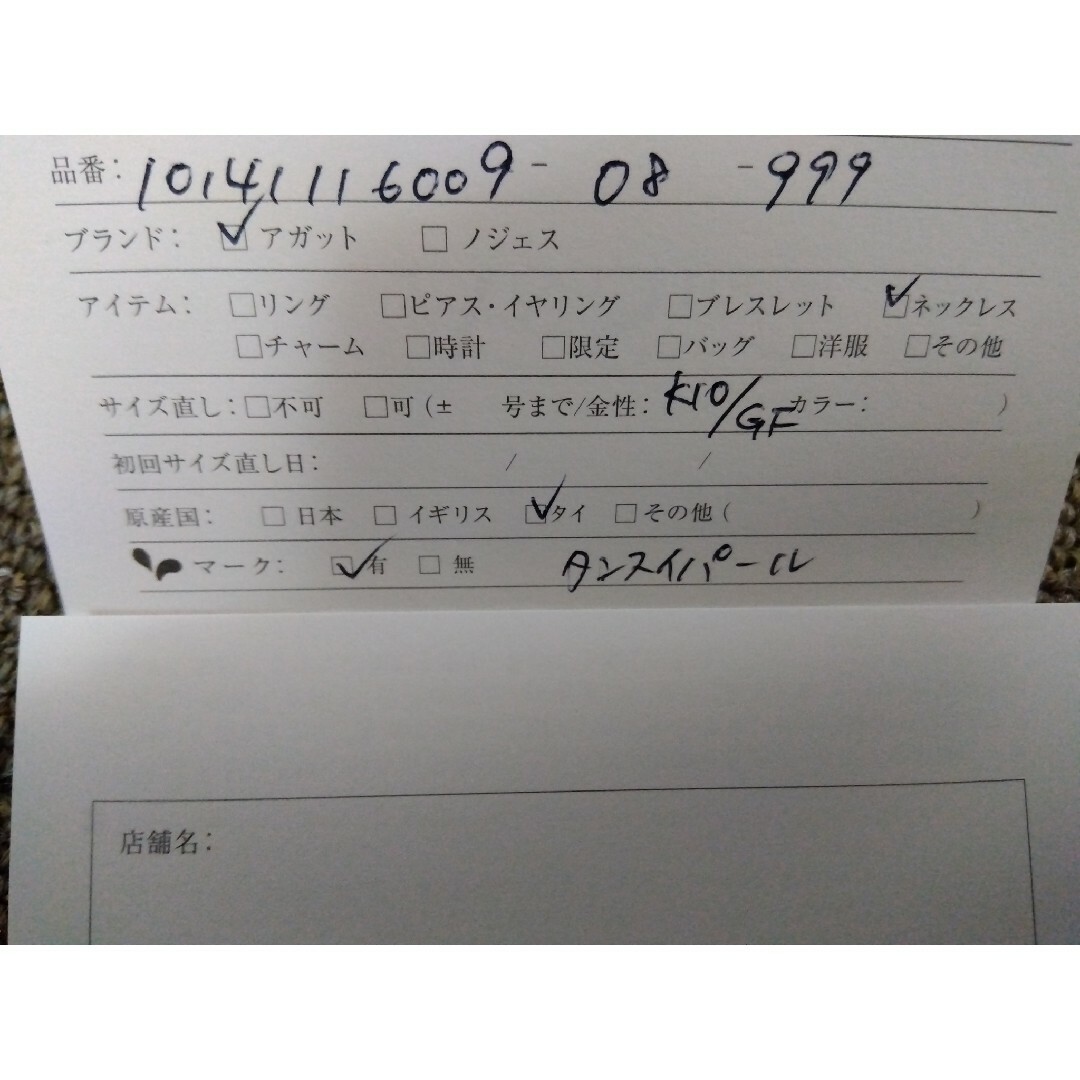 品番: 10141116009 - 08 - 999
ブランド: ☑アガット □ノジェス
アイテム: □リング □ピアス・イヤリング □ブレスレット ☑ネックレス
□チャーム □時計 □限定 □バッグ □洋服 □その他
サイズ直し: □不可 □可 (± 号まで/金性: K10/GF カラー: )
初回サイズ直し日: / /
原産国: □日本 □イギリス ☑タイ □その他 ( )
マーク: ☑有 □無 タンスイパール
店舗名: